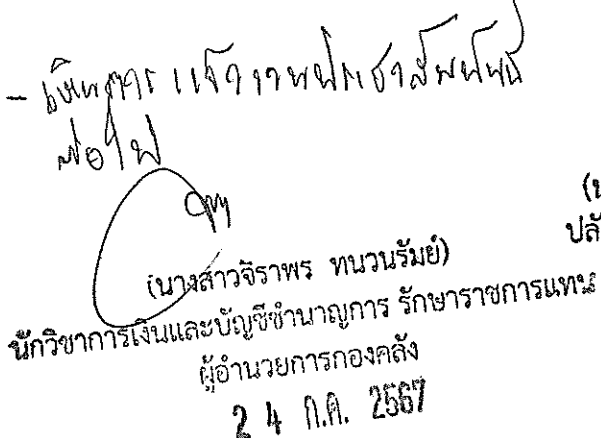 - เห็นควรแจ้งงานประชาสัมพันธ์
ต่อไป
(น
ปลั
(นางสาวจิราพร ทนวนรัมย์)
นักวิชาการเงินและบัญชีชำนาญการ รักษาราชการแทน
ผู้อำนวยการกองคลัง
2 4 ก.ค. 2567